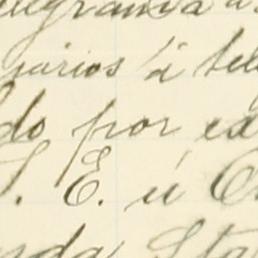 legrama a
uarios á tel
do por ex
S. E. ú O
nda Sta